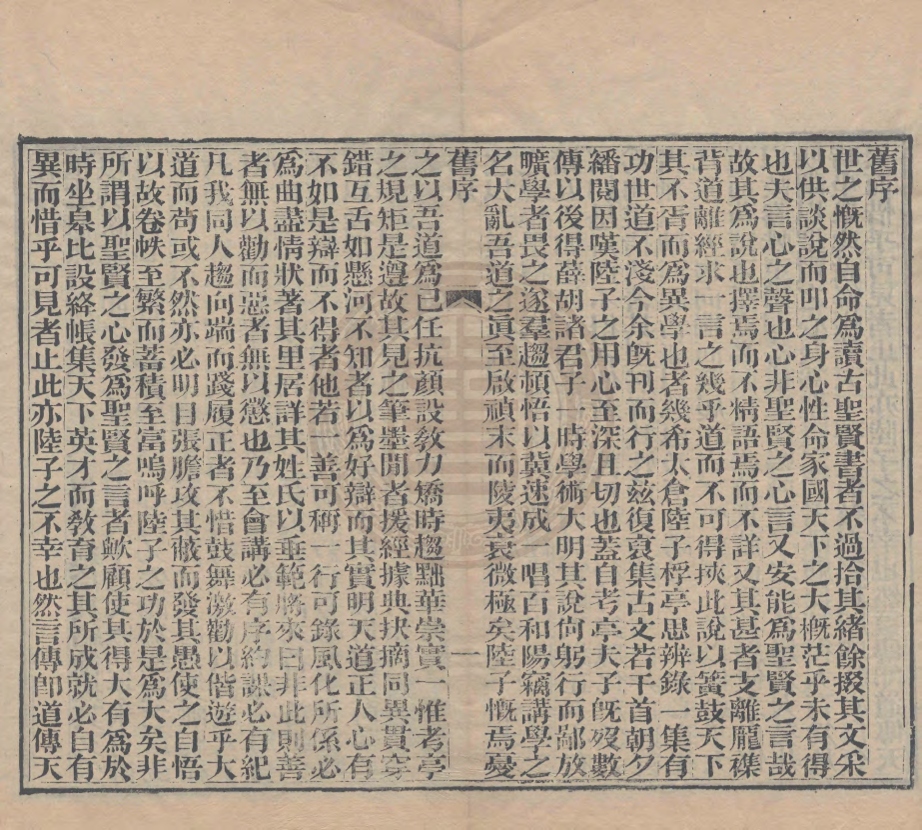 舊序
世之慨然自命爲讀古聖賢書者不過拾其緒餘掇其文采
以供談說而叩之身心性命家國天下之大槪茫乎未有得
也夫言心之聲也心非聖賢之心言又安能爲聖賢之言哉
故其爲說也擇焉而不精語焉而不詳又其甚者支離龐襍
背道離經求一言之幾乎道而不可得挾此說以簧鼓天下
其不胥而爲異學也者幾希太倉陸子桴亭思辨錄一集有
功世道不淺今余旣刊而行之茲復裒集古文若干首朝夕
繙閱因嘆陸子之用心至深且切也蓋自考亭夫子旣歿數
傳以後得薛胡諸君子一時學術大明其說尙躬行而鄙放
曠學者畏之遂羣趨頓悟以冀速成一唱百和陽竊講學之
名大亂吾道之眞至啟禎末而陵夷衰微極矣陸子慨焉憂
舊序
一
之以吾道爲已任抗顏設敎力矯時趨黜華崇實一惟考亭
之規矩是遵故其見之筆墨閒者援經據典抉摘同異貫穿
錯互舌如懸河不知者以爲好辯而其實明天道正人心有
不如是辯而不得者他若一善可稱一行可錄風化所係必
爲曲盡情狀著其里居詳其姓氏以垂範將來曰非此則善
者無以勸而惡者無以懲也乃至會講必有序約課必有紀
凡我同人趨向端而踐履正者不惜鼓舞激勸以偕遊乎大
道而苟或不然亦必明目張膽攻其蔽而發其愚使之自悟
以故卷帙至繁而蓄積至富嗚呼陸子之功於是爲大矣非
所謂以聖賢之心發爲聖賢之言者歟顧使其得大有爲於
時坐皋比設絳帳集天下英才而敎育之其所成就必自有
異而惜乎可見者止此亦陸子之不幸也然言傳卽道傳天